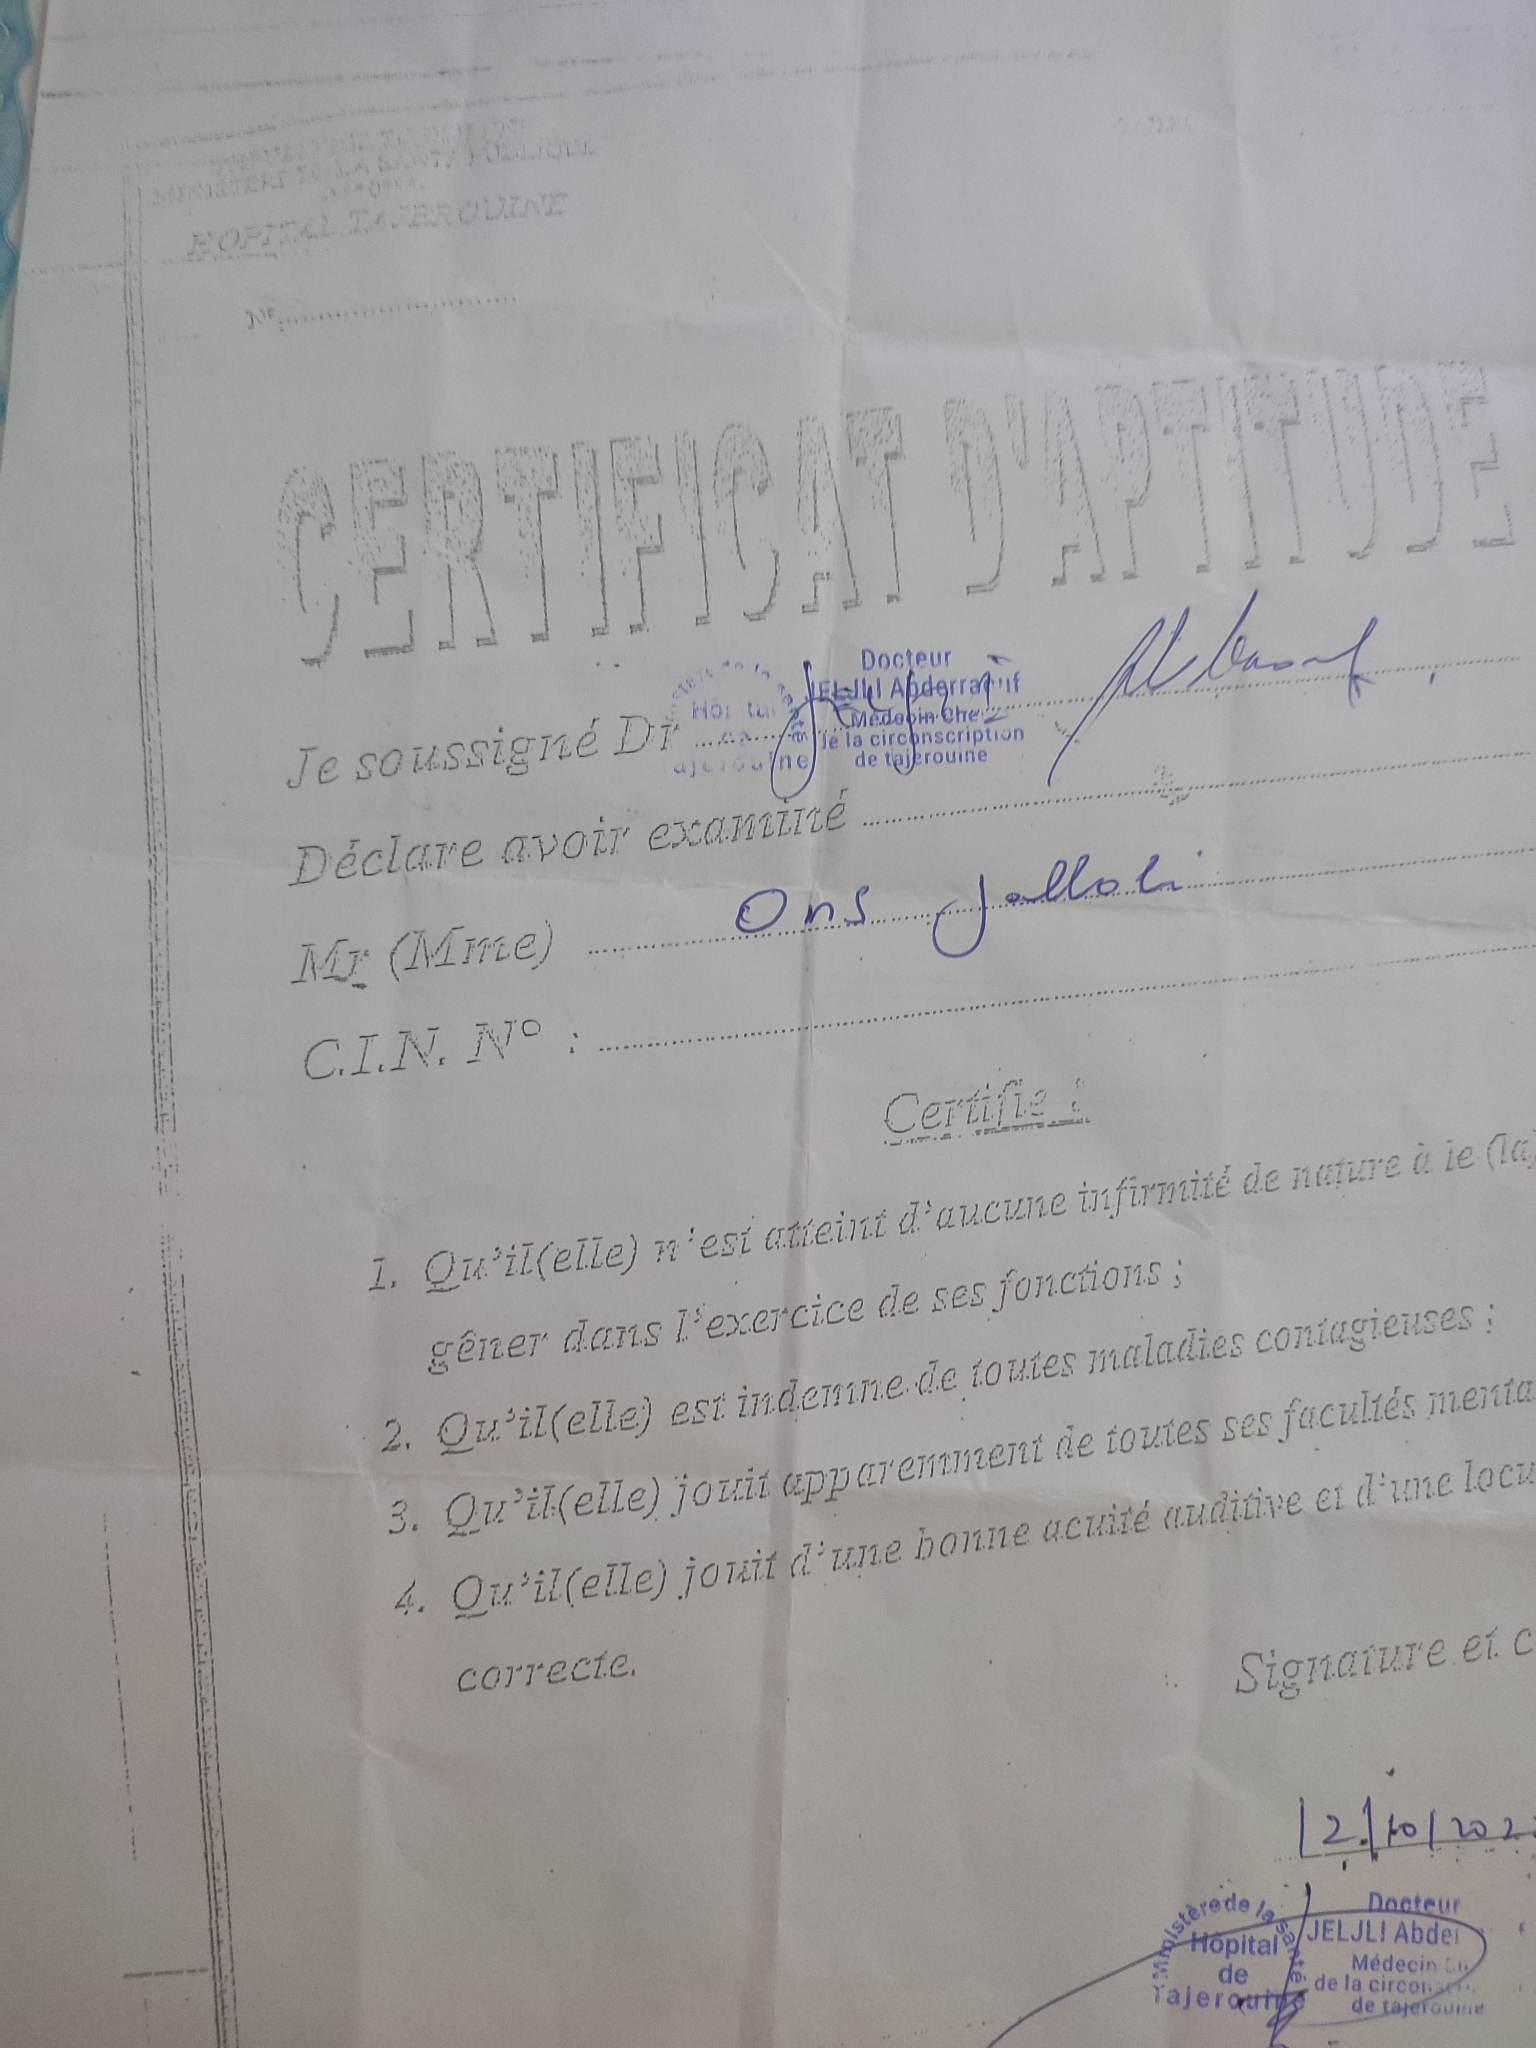 REPUBLIQUE TUNISIENNE
MINISTERE DE LA SANTE PUBLIQUE
HOPITAL TAJEROUINE
N°:
CERTIFICAT D'APTITUDE
Docteur
JELJLI Abderraouf
Médecin Chef
de la circonscription
de tajerouine
Je soussigné Dr
Déclare avoir examiné
Mr (Mme) Ons Jallali
C.I.N. N° :
Certifie :
1. Qu'il(elle) n'est atteint d'aucune infirmité de nature à le (la)
gêner dans l'exercice de ses fonctions ;
2. Qu'il(elle) est indemne de toutes maladies contagieuses ;
3. Qu'il(elle) jouit apparemment de toutes ses facultés menta
4. Qu'il(elle) jouit d'une bonne acuité auditive et d'une locu
correcte.
Signature et c
12/10/202
Ministère de la santé
Hôpital
de
Tajerouine
Docteur
JELJLI Abder
Médecin
de la circons
de tajerouine